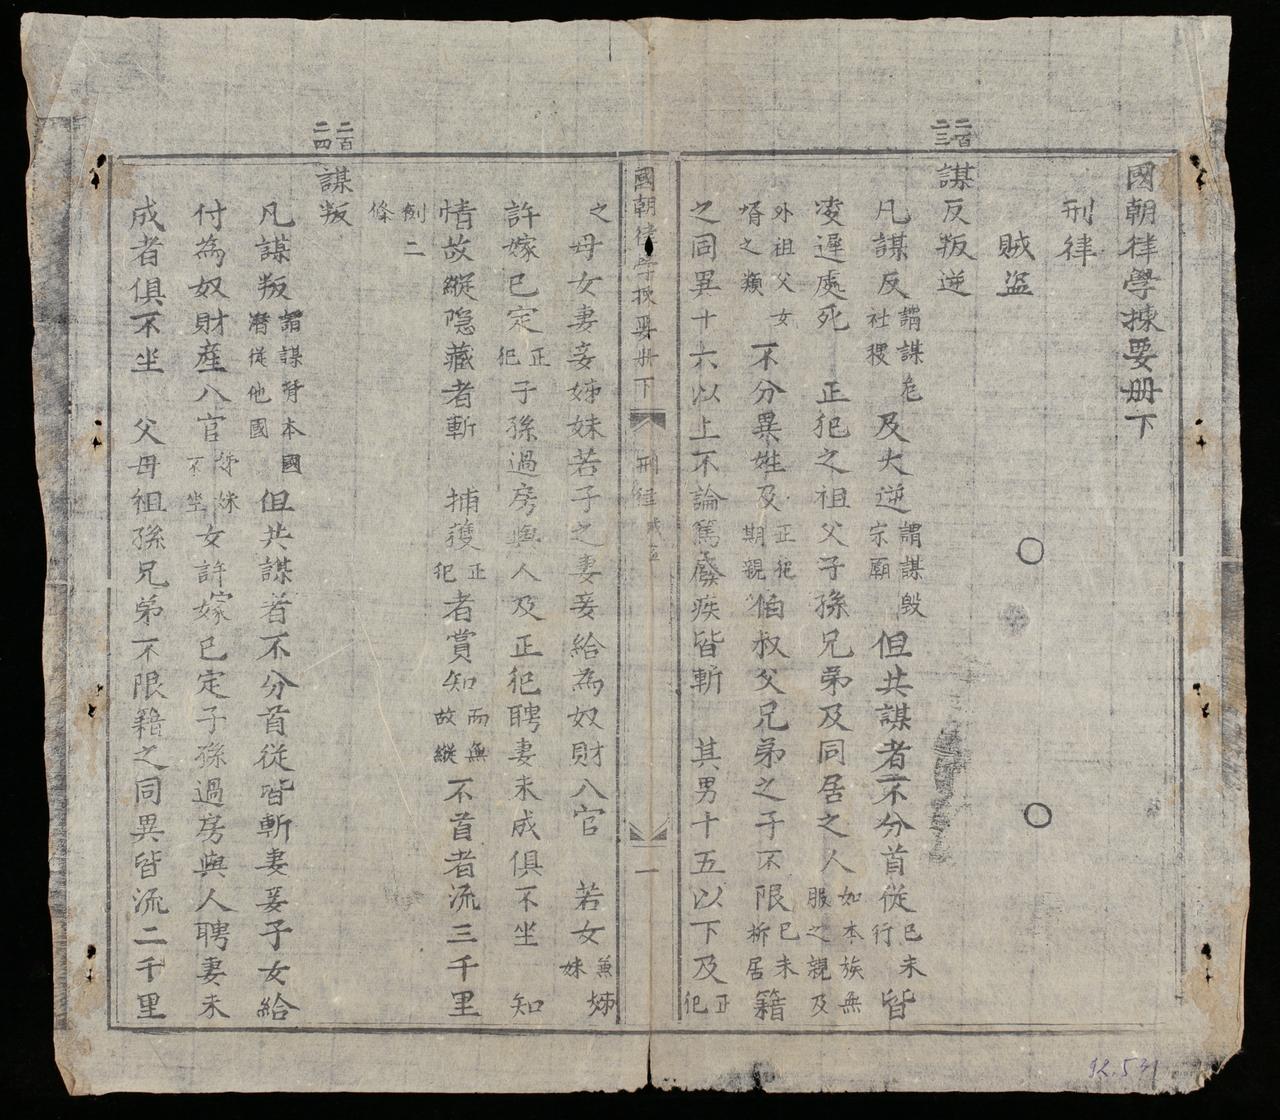 國朝律學揀要册下
刑律
賊盗
二百二三
謀反叛逆
凡謀反謂謀危社稷及大逆謂謀毀宗廟但共謀者不分首從已未行皆
凌遲處死 正犯之祖父子孫兄弟及同居之人如本族無服之親及
外祖父女婿之類不分異姓及正犯期親伯叔父兄弟之子不限已未析居籍
之同異十六以上不論篤廢疾皆斬 其男十五以下及正犯
國朝律學揀要册下 刑律 賊盗 一
之母女妻妾姊妹若子之妻妾給為奴財入官 若女兼姊妹
許嫁已定正犯子孫過房與人及正犯聘妻未成俱不坐 知
情故縱隐藏者斬 捕獲正犯者賞知而無故縱不首者流三千里
例二條
二百二四
謀叛
凡謀叛謂謀背本國潛從他國但共謀者不分首從皆斬妻妾子女給
付為奴財產入官姊妹不坐女許嫁已定子孫過房與人聘妻未
成者俱不坐 父母祖孫兄弟不限籍之同異皆流二千里
92.531